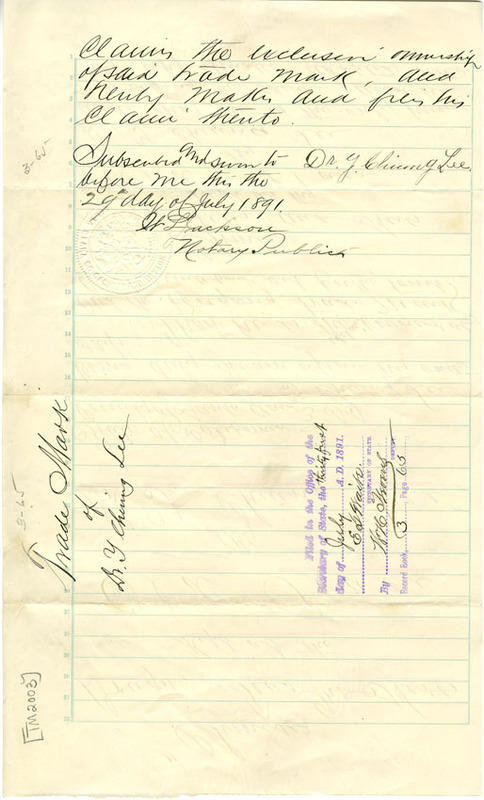 Claims the exclusive ownership
of said trade mark, and
hereby makes and files his
Claim thereto.
Subscribed and sworn to
before me this the
29th day of July 1891.
Dr. Y. Chung Lee.
Jackson
Notary Public
3-65
Trade Mark
of
Dr. Y Chung Lee
3-65
[TM2003]
Filed in the Office of the
Secretary of State, the thirty first
day of July A.D. 1891.
E. G. Waite
SECRETARY OF STATE.
By
DEPUTY
Record Book, 3 Page 65